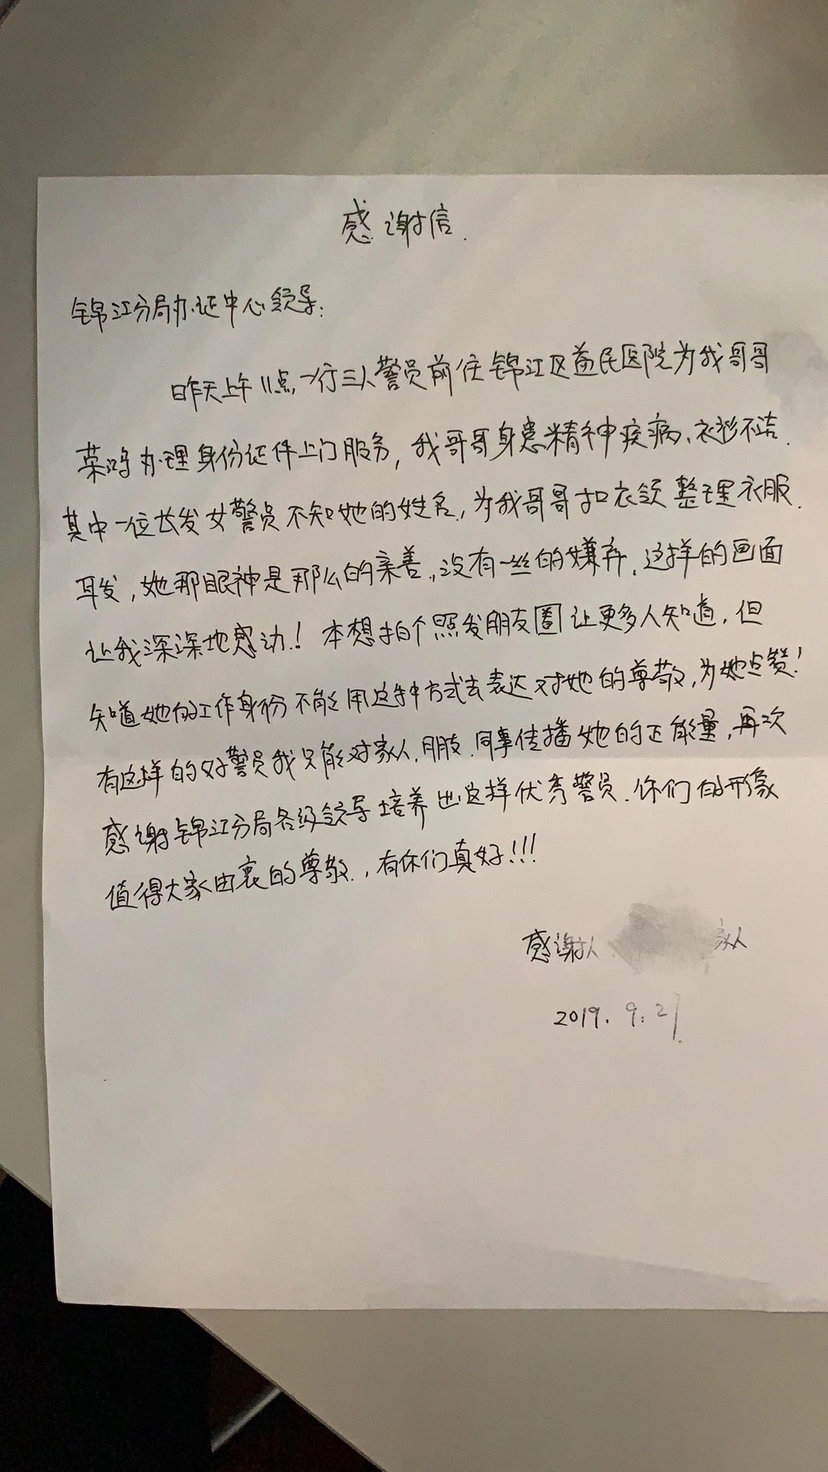 感谢信.
锦江分局办证中心领导:
昨天上午11点,一行三人警员前往锦江区益民医院为我哥哥
办理身份证件上门服务,我哥哥身患精神疾病、衣衫不洁.
其中一位长发女警员不知她的姓名,为我哥哥扣衣领整理衣服.
发,她那眼神是那么的亲善,没有一丝的嫌弃,这样的画面
让我深深地感动!本想拍个照发朋友圈让更多人知道,但
知道她的工作身份不能用这种方式去表达对她的尊敬,为她点赞!
有这样的好警员我只能对家人.朋友.同事传播她的正能量,再次
感谢锦江分局各级领导培养出这样优秀警员.你们的形象
值得大家由衷的尊敬.,有你们真好!!!
感谢人 家人
2019.9.27.